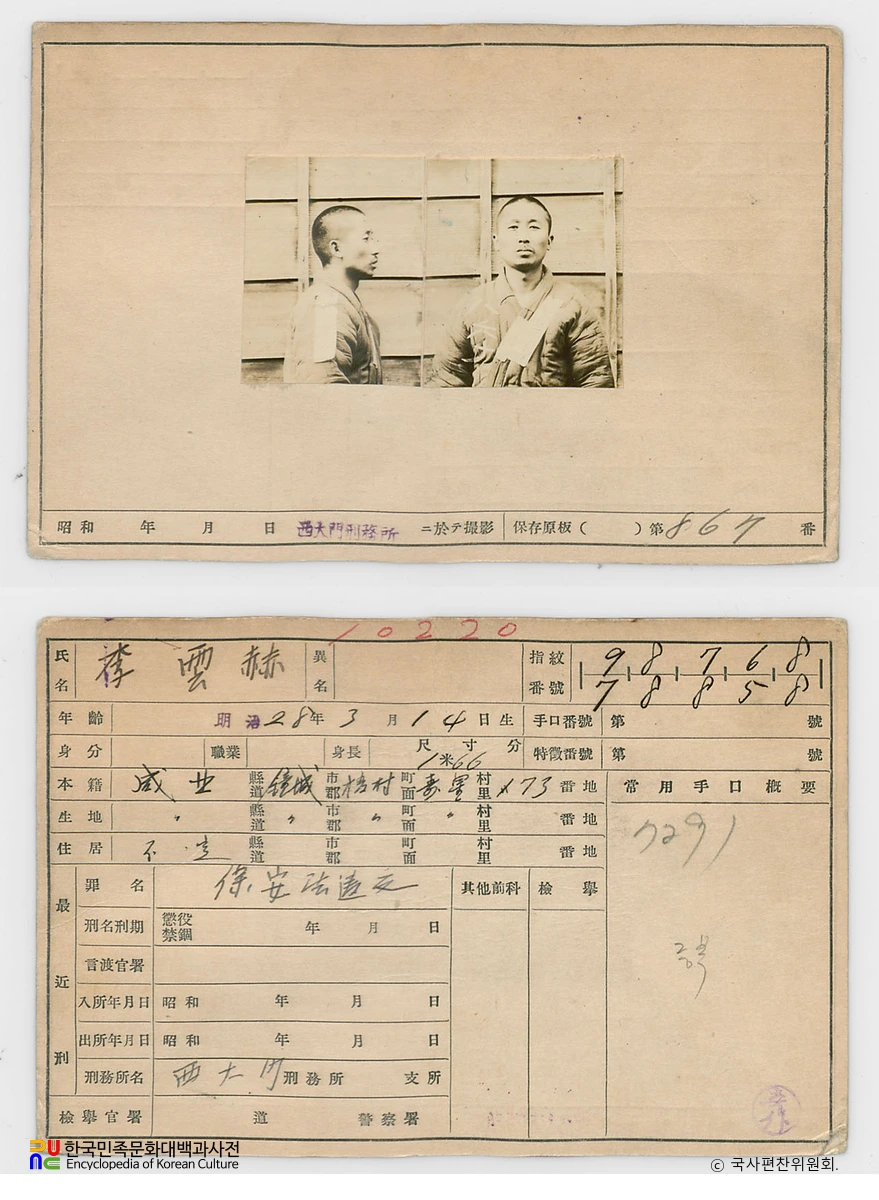 昭和 年 月 日 西大門刑務所 ニ於テ撮影 保存原板( )第867番
10220
氏名 李雲赫 異名 指紋番號 98768 78858
年齡 明治28年3月14日生 手口番號 第 號
身分 職業 身長 尺寸分 1米66 特徵番號 第 號
本籍 咸北 縣道 鐘城 市郡 梧村 町面 壽星 村里 173 番地 常用手口概要
生地 〃 縣道 〃 市郡 〃 町面 〃 村里 番地
住居 不定 縣道 市郡 町面 村里 番地
最近刑
罪名 保安法違反 其他前科 檢擧
刑名刑期 懲役 禁錮 年 月 日
言渡官署
入所年月日 昭和 年 月 日
出所年月日 昭和 年 月 日
刑務所名 西大門 刑務所 支所
檢擧官署 道 警察署
한국민족문화대백과사전
Encyclopedia of Korean Culture
© 국사편찬위원회.